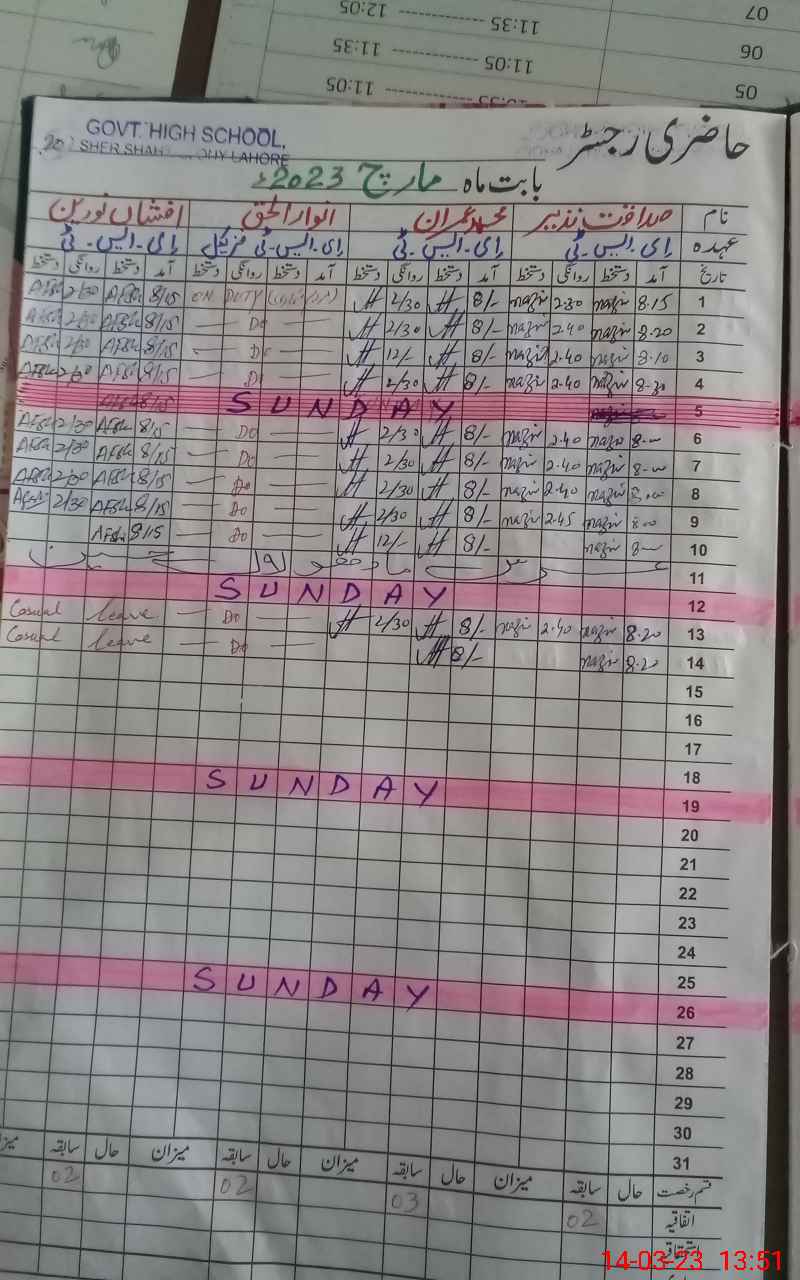 07
06
05
12:05
11:35
11:35
11:05
11:05
GOVT. HIGH SCHOOL,
SHER SHAH LAHORE
حاضری رجسٹر
بابت ماہ مارچ 2023ء
نام صداقت نذیر محمد عمران انوار الحق افشاں نورین
عہدہ ای۔ایس۔ٹی ای۔ایس۔ٹی ای۔ایس۔ٹی ای۔ایس۔ٹی
تاریخ آمد دستخط روانگی دستخط آمد دستخط روانگی دستخط آمد دستخط روانگی دستخط آمد دستخط روانگی دستخط
1 8.15 nazir 2.30 nazir 8/- 2/30 ON DUTY 8/15 Afsh 2/30 Afsh
2 8.20 nazir 2.40 nazir 8/- 2/30 Do 8/15 Afsh 2/30 Afsh
3 8.10 nazir 2.40 nazir 8/- 12/- Do 8/15 Afsh 2/30 Afsh
4 8.30 nazir 2.40 nazir 8/- 2/30 Do 8/15 Afsh 2/30 Afsh
5 SUNDAY
6 8.00 nazir 2.40 nazir 8/- 2/30 Do 8/15 Afsh 2/30 Afsh
7 8.00 nazir 2.40 nazir 8/- 2/30 Do 8/15 Afsh 2/30 Afsh
8 8.00 nazir 2.40 nazir 8/- 2/30 Do 8/15 Afsh 2/30 Afsh
9 8.00 nazir 2.45 nazir 8/- 2/30 Do 8/15 Afsh 2/30 Afsh
10 8.00 nazir 8/- 12/- Do 8/15 Afsh
11
12 SUNDAY
13 8.20 nazir 2.40 nazir 8/- 2/30 Do Casual leave
14 8.20 nazir 8/- Do Casual leave
15
16
17
18
19 SUNDAY
20
21
22
23
24
25
26 SUNDAY
27
28
29
30
31
قسم رخصت حال سابقہ میزان حال سابقہ میزان حال سابقہ میزان حال سابقہ میزان
اتفاقیہ 02 03 02 02
استحقاقیہ
14-03-23 13:51